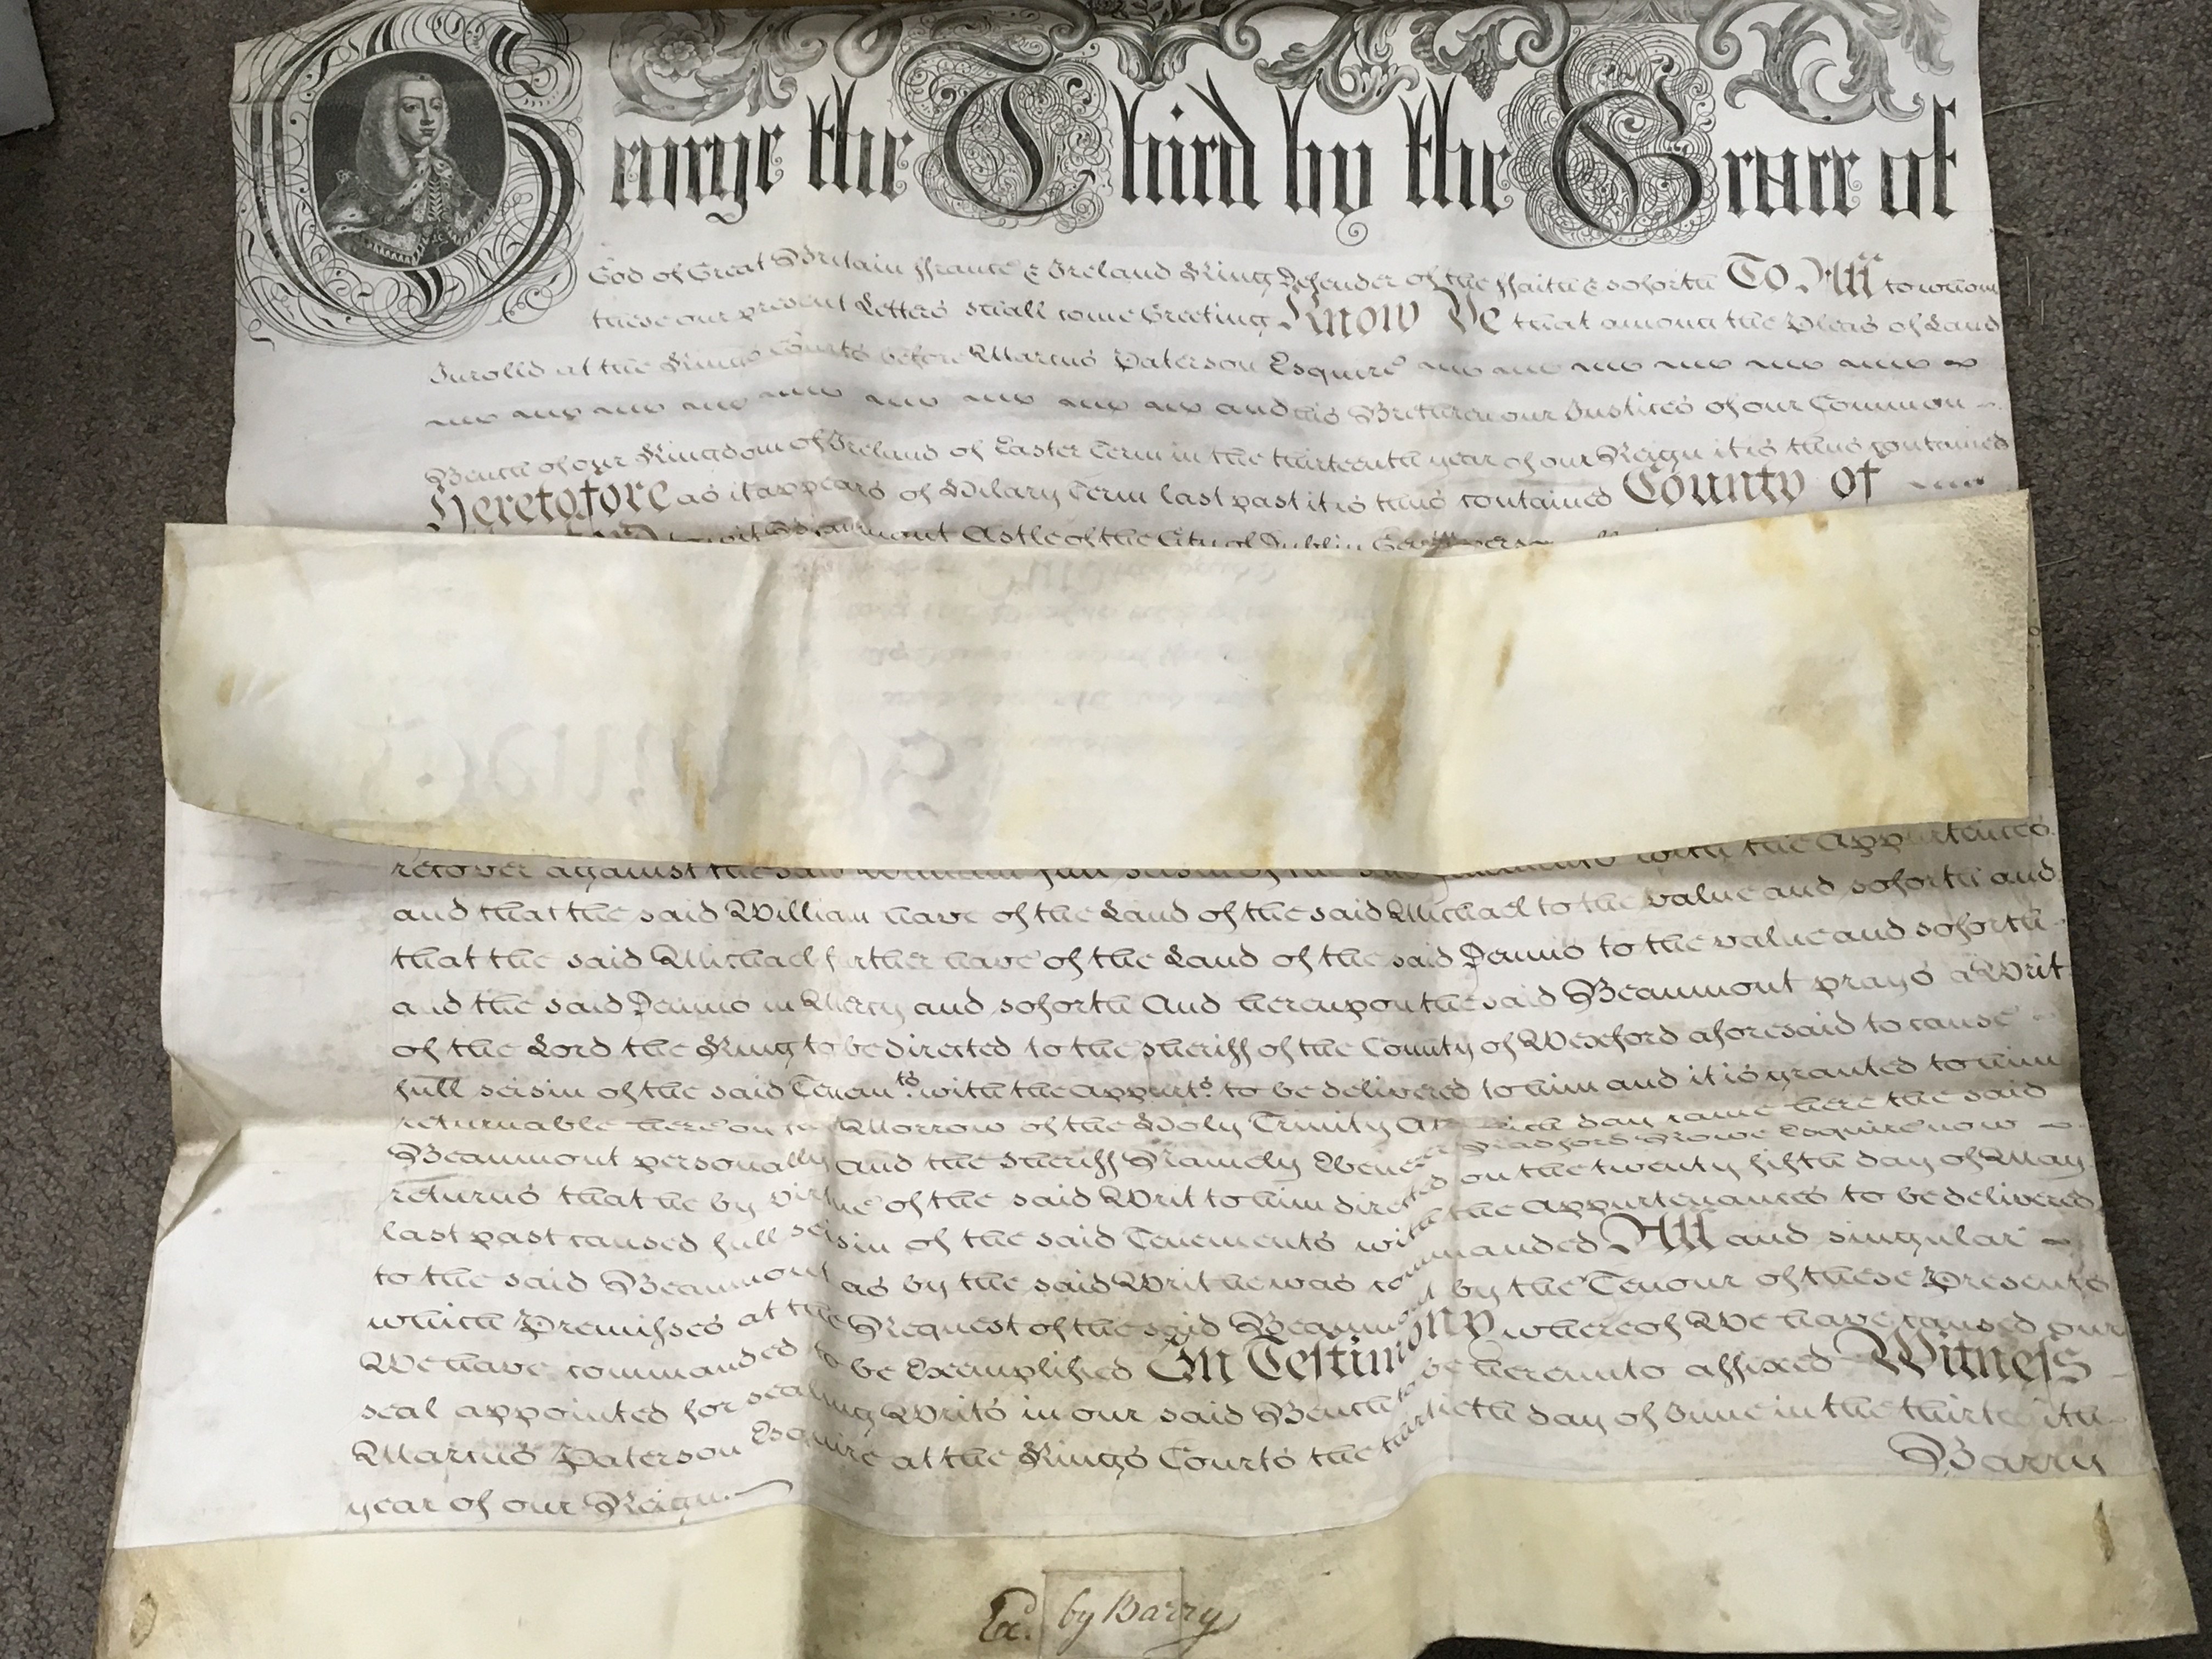 George the Third by the Grace of
God of Great Britain ffrance & Ireland King Defender of the ffaith & soforth To All to whom
these our present Letters shall come Greeting Know Ye that among the Pleas of Land
Inrolld at the Kings Courts before Marcus Paterson Esquire
and his Brethren our Justices of our Common
Bench of our Kingdom of Ireland of Easter Term in the thirteenth year of our Reign it is thus contained
Heretofore as it appears of Hilary Term last past it is thus contained County of
to wit Beaumont Astle of the City of Dublin
recover against the said William full seisin of the with the Appurtenances
and that the said William have of the Land of the said Michael to the value and soforth and
that the said Michael further have of the Land of the said Dennis to the value and soforth
and the said Dennis in Mercy and soforth And hereupon the said Beaumont prays a Writ
of the Lord the King to be directed to the Sheriff of the County of Wexford aforesaid to cause
full seisin of the said Tenemts. with the Appurts. to be delivered to him and it is granted to him
returnable here on the Morrow of the Holy Trinity At which day came here the said
Beaumont personally and the Sheriff Namely Ebenezer Radford Rowe Esquire now
returns that he by virtue of the said Writ to him directed on the twenty fifth day of May
last past caused full seisin of the said Tenements with the Appurtenances to be delivered
to the said Beaumont as by the said Writ he was commanded All and singular
which Premisses at the Request of the said Beaumont by the Tenour of these Presents
We have commanded to be Exemplified In Testimony whereof We have caused our
seal appointed for sealing Writs in our said Bench to be hereunto affixed Witness
Marcus Paterson Esquire at the Kings Courts the thirtieth day of June in the thirteenth
year of our Reign.
Barry
Ex. by Barry